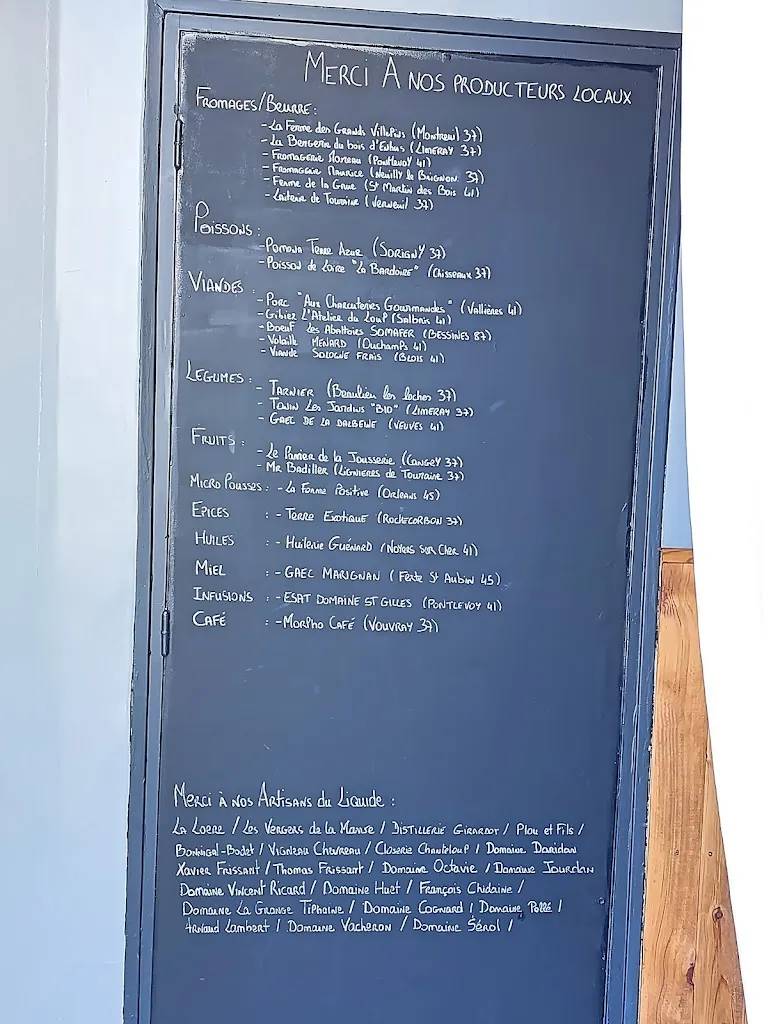 MERCI A NOS PRODUCTEURS LOCAUX
FROMAGES/BEURRE :
- La Ferme des Grands Villepins (Montreuil 37)
- La Bergerie du bois d'Enhus (LIMERAY 37)
- FROMAGERIE Moreau (Pontlevoy 41)
- Fromagerie Maurice (Neuilly le Brignon 37)
- Ferme de la Grue (St Martin des Bois 41)
- Laiterie de Touraine (Verneuil 37)
POISSONS :
- Pomona Terre Azur (SORIGNY 37)
- Poisson de Loire "La Bardoire" (Chisseaux 37)
VIANDES :
- PORC "Aux Charcuteries Gourmandes" (Vallières 41)
- Gibier L'Atelier du Loup (Salbris 41)
- Boeuf Les Abattoirs SOMAFER (BESSINES 87)
- Volaille MENARD (Ouchamps 41)
- Viande SOLOGNE FRAIS (BLOIS 41)
LEGUMES :
- TARNIER (Beaulieu les loches 37)
- TONIN Les Jardins "BIO" (LIMERAY 37)
- GAEC DE LA (VEUVES 41)
FRUITS :
- Le Panier de la Jousserie (CANGEY 37)
- Mr Badiller (LIGNIERES de Touraine 37)
MICRO POUSSES : - La Ferme Positive (ORLEANS 45)
EPICES : - Terre Exotique (ROCHECORBON 37)
HUILES : - Huilerie GUÉNARD (NOYERS SUR CHER 41)
MIEL : - GAEC MARIGNAN (Ferté St Aubin 45)
INFUSIONS : - ESAT DOMAINE ST GILLES (PONTLEVOY 41)
CAFÉ : - MORPHO CAFÉ (VOUVRAY 37)
Merci à nos Artisans du Liquide :
LA LOERE / Les Vergers de la Manse / DISTILLERIE GIRARDOT / Plou et Fils /
Bonnigal-Bodet / VIGNEAU Chevreau / Closerie Chanteloup / Domaine Daridan
Xavier Frissant / Thomas Frissant / Domaine Octavie / Domaine Jourdan
Domaine Vincent Ricard / Domaine Huet / François Chidaine /
Domaine La Grange Tiphaine / Domaine Cognard / Domaine Pellé /
Arnaud Lambert / Domaine Vacheron / Domaine Sérol /